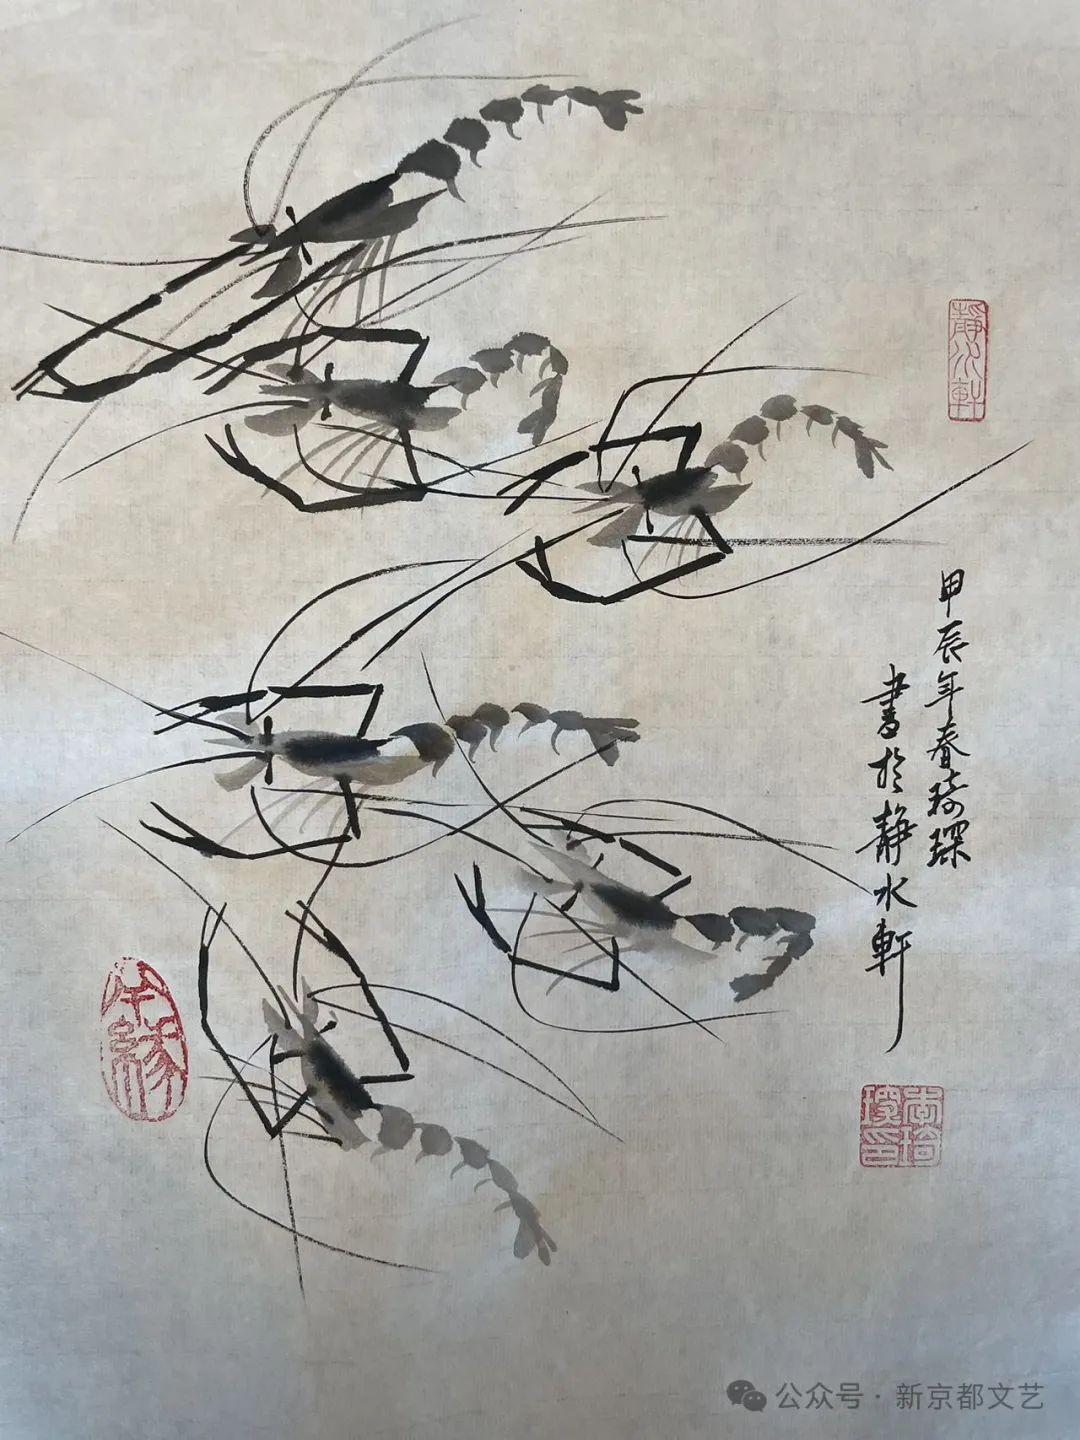 甲辰年春琦琛
書於靜水軒
靜水軒
公众号·新京都文艺